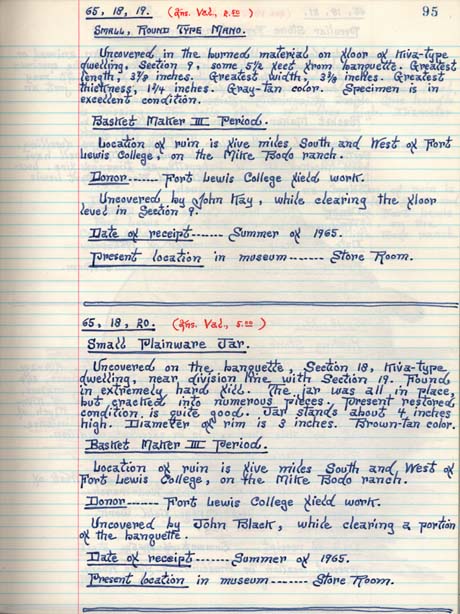 95
65, 18, 19. (Ins. Val., 2.50)
Small, Round Type Mano.
Uncovered in the burned material on floor of Kiva-type
dwelling, Section 9, some 5½ feet from banquette. Greatest
length, 3⅞ inches. Greatest width, 3⅜ inches. Greatest
thickness, 1¼ inches. Gray-Tan color. Specimen is in
excellent condition.
Basket Maker III Period.
Location of ruin is five miles South and West of Fort
Lewis College, on the Mike Bodo ranch.
Donor------- Fort Lewis College field work.
Uncovered by John Kay, while clearing the floor
level in Section 9.
Date of receipt------- Summer of 1965.
Present location in museum------- Store Room.
65, 18, 20. (Ins. Val., 5.00)
Small Plainware Jar.
Uncovered on the banquette, Section 18, Kiva-type
dwelling, near division line with Section 19. Found
in extremely hard fill. The jar was all in place,
but cracked into numerous pieces. Present restored
condition is quite good. Jar stands about 4 inches
high. Diameter of rim is 3 inches. Brown-Tan color.
Basket Maker III Period.
Location of ruin is five miles South and West of
Fort Lewis College, on the Mike Bodo ranch.
Donor------- Fort Lewis College field work.
Uncovered by John Black, while clearing a portion
of the banquette.
Date of receipt------- Summer of 1965.
Present location in museum------- Store Room.